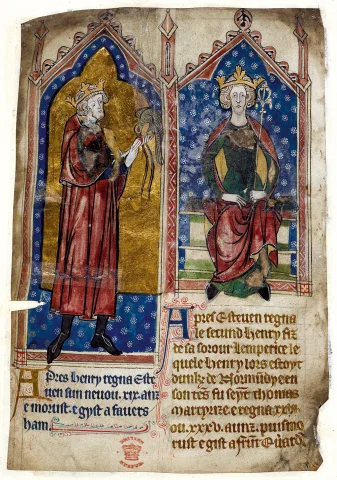 Apres henry regna Este
uen sun neuou .xix. anz
e morust e gyst a fauers
ham.
Apres Esteuen regna
le secund henry fiz
de sa sorour lemperice le
quele henry lors estoyt
duk de Normundy e en
son tens fu seynt thomas
martyrize e regna .xxx
ou .xxxv. aunz. puis mo
rust e gist a frunt
BRITISH
MUSEUM